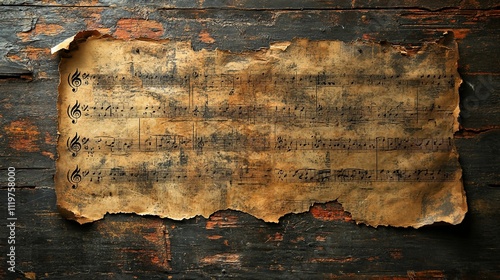 Adobe Stock | #1119758000